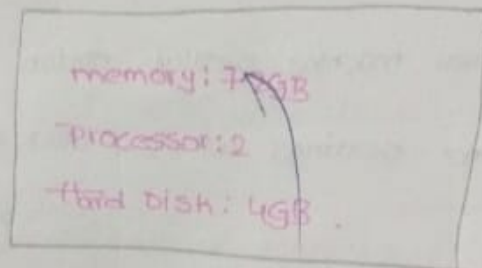 memory: GB
Processor: 2
Hard Disk: 4GB.